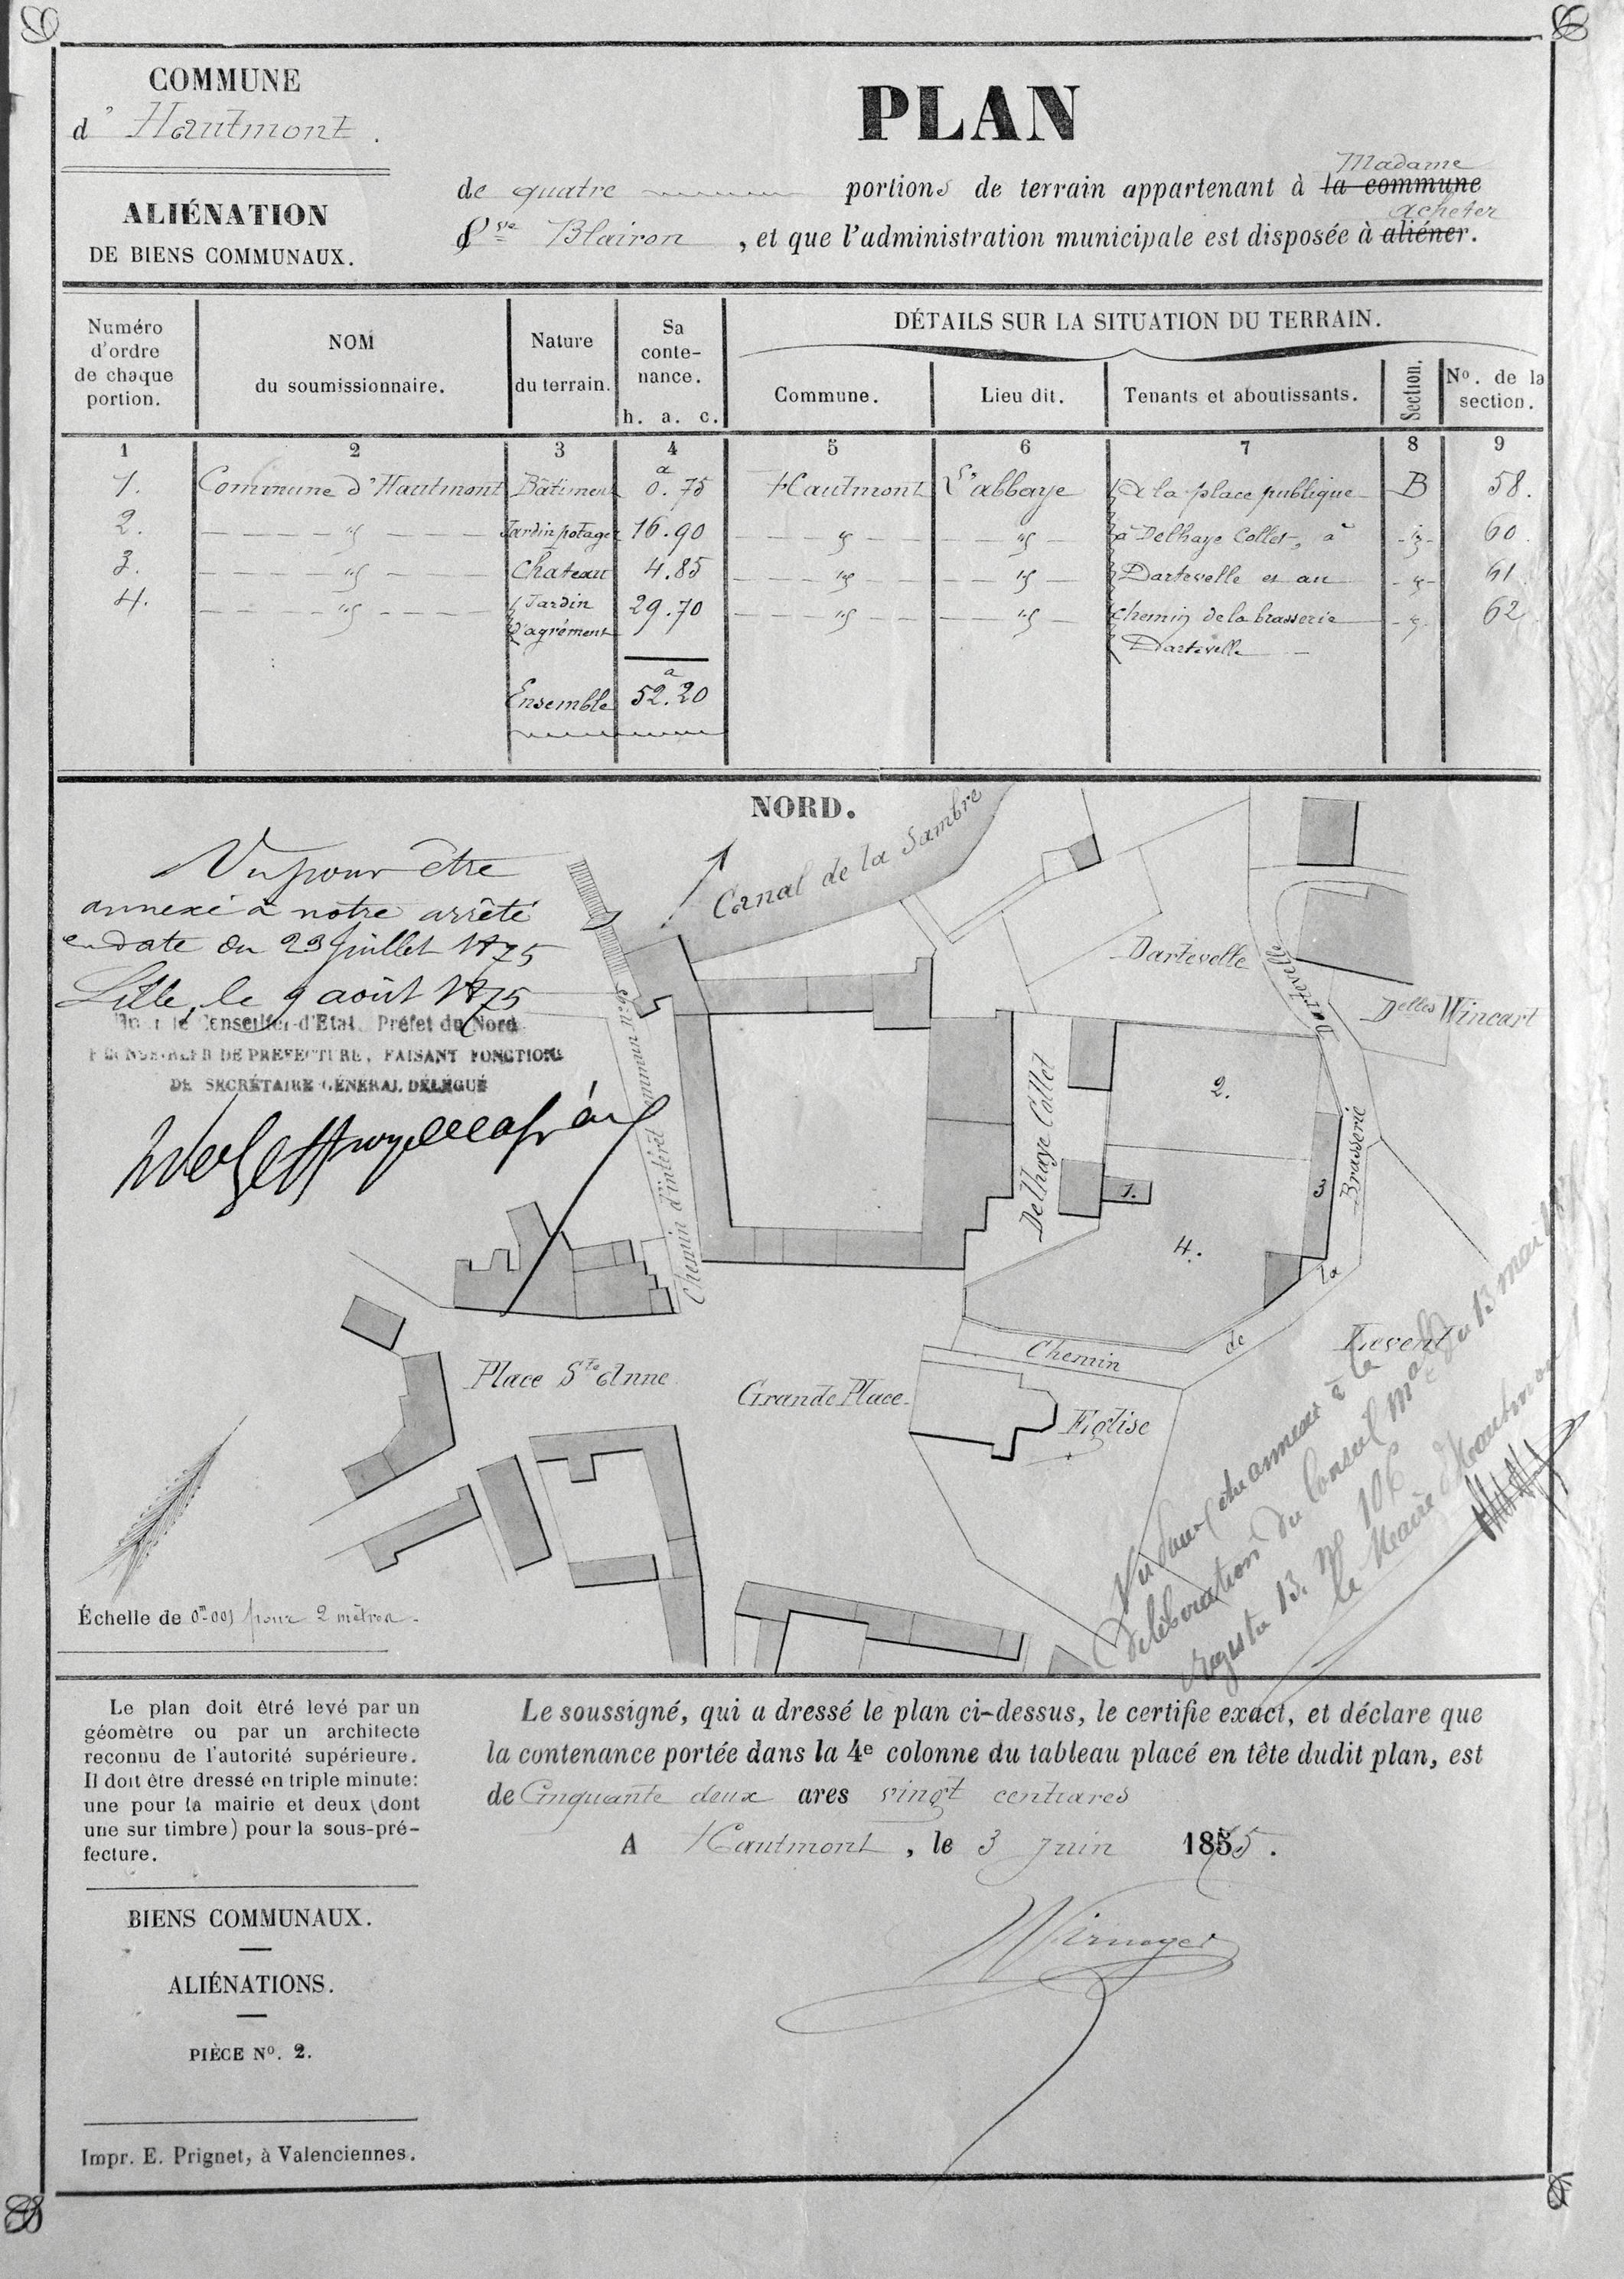 COMMUNE
d' Hautmont.
ALIÉNATION
DE BIENS COMMUNAUX.
PLAN
de quatre portions de terrain appartenant à la commune
Madame
Vve Blairon, et que l'administration municipale est disposée à aliéner.
acheter
Numéro d'ordre de chaque portion.
NOM du soumissionnaire.
Nature du terrain.
Sa contenance.
h. a. c.
DÉTAILS SUR LA SITUATION DU TERRAIN.
Commune.
Lieu dit.
Tenants et aboutissants.
Section.
No. de la section.
1 2 3 4 5 6 7 8 9
1. Commune d'Hautmont Bâtiment 0a.75 Hautmont L'abbaye à la place publique B 58.
2. " Jardin potager 16.90 " " à Delhaye Collet, à " 60.
3. " Chateau 4.85 " " Dartevelle et au " 61.
4. " Jardin d'agrément 29.70 " " chemin de la brasserie " 62
Dartevelle
Ensemble 52a.20
NORD.
Vu pour être
annexé à notre arrêté
en date du 23 juillet 1875
Lille, le 9 août 1875
le Conseiller d'Etat Préfet du Nord
DE PREFECTURE, FAISANT FONCTIONS
DE SECRÉTAIRE GÉNÉRAL DÉLÉGUÉ
Canal de la Sambre
Dartevelle
Dartevelle
Delles Wincart
Chemin d'intérêt commun
Delhaye Collet
2.
1.
3
4.
Brasserie
la
de
Chemin
Place Ste Anne
Grande Place
Eglise
Vu pour être annexé à la
délibération du Conseil mal du 13 mai
registre 13. no 106
le Maire d'Hautmont
Échelle de 0m001 pour 2 mètres.
Le plan doit être levé par un
géomètre ou par un architecte
reconnu de l'autorité supérieure.
Il doit être dressé en triple minute:
une pour la mairie et deux (dont
une sur timbre) pour la sous-pré-
fecture.
BIENS COMMUNAUX.
ALIÉNATIONS.
PIÈCE No. 2.
Impr. E. Prignet, à Valenciennes.
Le soussigné, qui a dressé le plan ci-dessus, le certifie exact, et déclare que
la contenance portée dans la 4e colonne du tableau placé en tête dudit plan, est
de Cinquante deux ares vingt centiares
A Hautmont, le 3 Juin 1875.